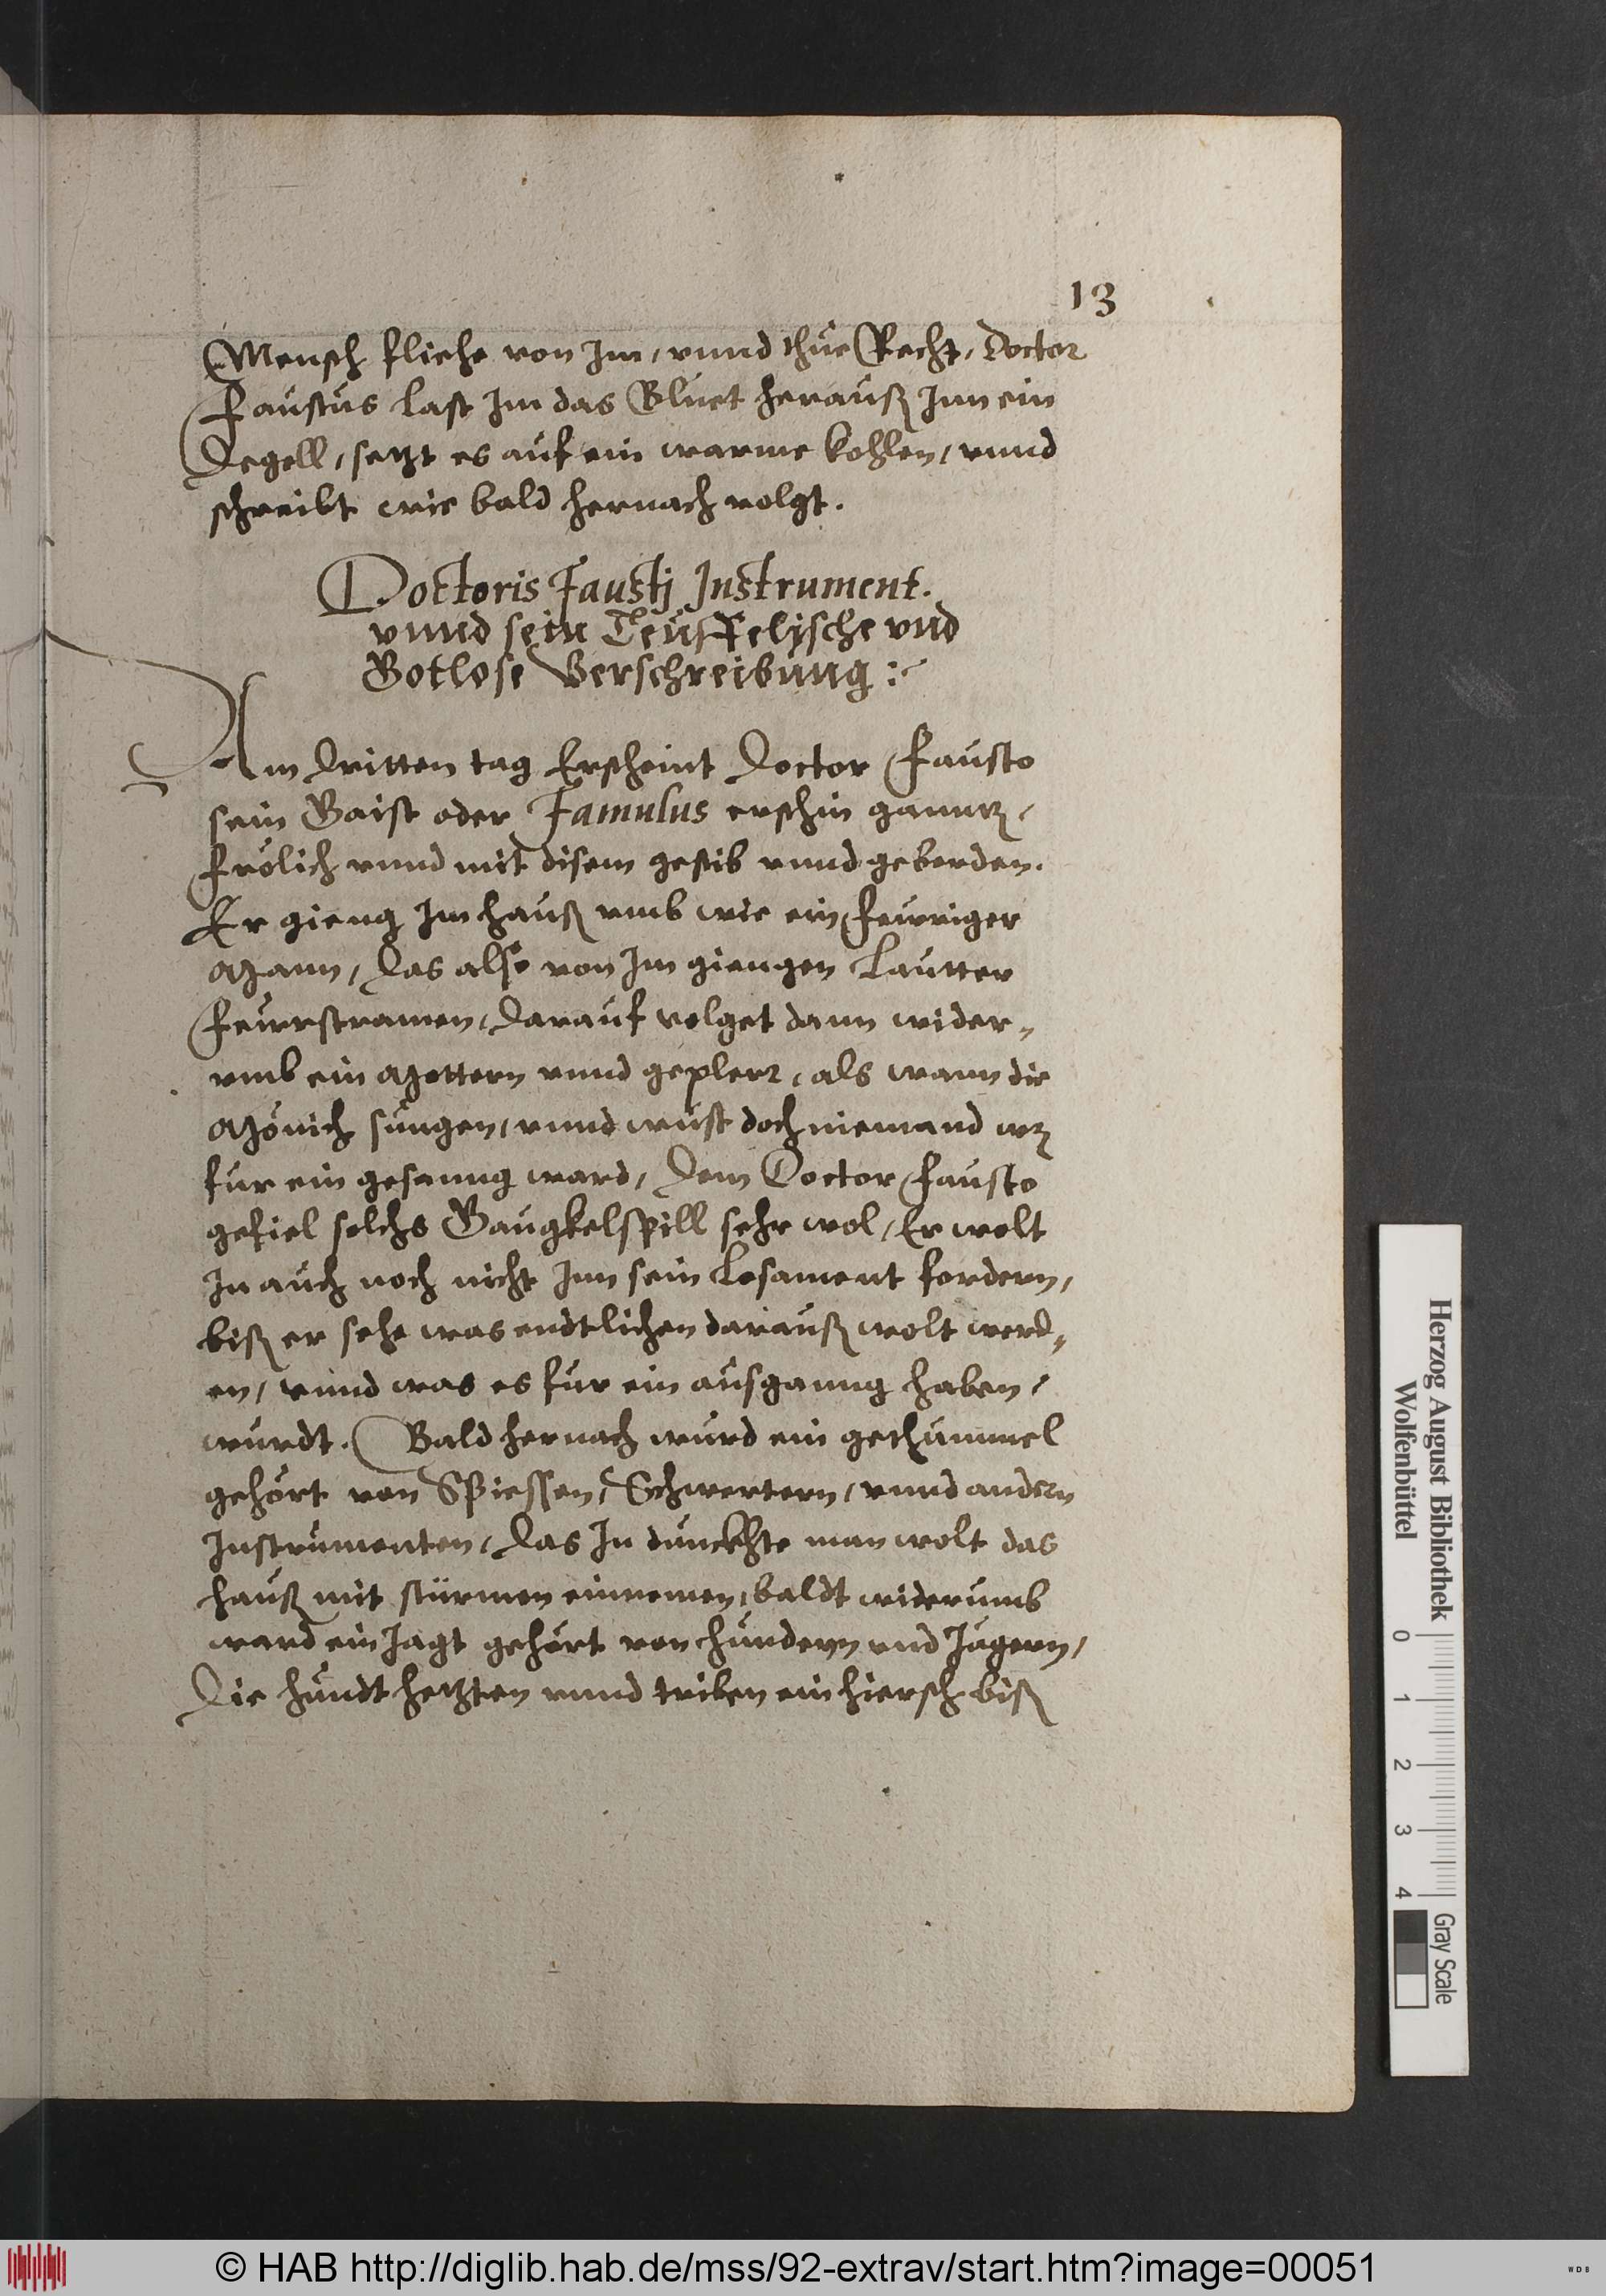 13
Mensch fliehe von Im, vnnd thue Recht, Doctor
Faustus last Im das Bluet herauß Inn ein
Degell, setzt es auf ein warme kohlen, vnnd
schreibt wie bald hernach volgt.
Doctoris Faustj Instrument.
vnnd sein Teuffelische vnd
Gotlose Verschreibung :
Am dritten tag Erscheint Doctor Fausto
sein Gaist oder Famulus erschin ganntz
frölich vnnd mit disem gestib vnnd geberden.
Er gieng Im hauß vmb wie ein feuriger
Mann, das also von Im giengen Lautter
Feurstramen, darauf volget dann wider„
vmb ein Mottern vnnd geplerr, als wann die
Mönich sungen, vnnd wust doch niemand wz
für ein gesanng ward, Dem Doctor Fausto
gefiel solchs Gaugkelspill sehr wol, Er wolt
In auch noch nicht Inn sein Losament fordern,
biß er sehe was endtlichen darauß wolt werd„
en, vnnd was es für ein ausganng haben
wurdt. Bald hernach wurd ein gethümmel
gehört von Spiessen, Schwertern, vnnd andern
Instrumenten, das In dunckhte man wolt das
hauß mit stürmen einnemen, baldt widerumb
ward ein Jagt gehört von hundern vnd Jägern,
Die hundt hetzten vnnd triben ein hiersch biß
Herzog August Bibliothek
Wolfenbüttel
0 1 2 3 4
Gray Scale
© HAB http://diglib.hab.de/mss/92-extrav/start.htm?image=00051
WDB